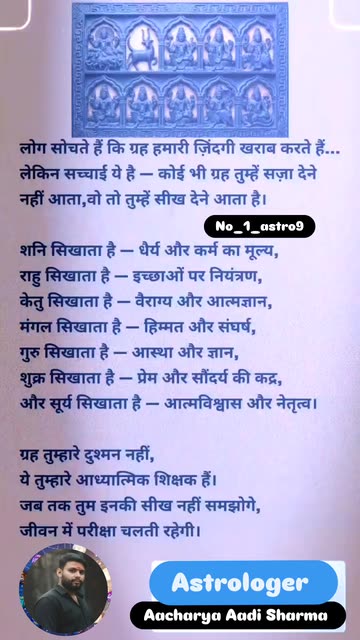 लोग सोचते हैं कि ग्रह हमारी ज़िंदगी खराब करते हैं...
लेकिन सच्चाई ये है — कोई भी ग्रह तुम्हें सज़ा देने
नहीं आता,वो तो तुम्हें सीख देने आता है।
No_1_astro9
शनि सिखाता है — धैर्य और कर्म का मूल्य,
राहु सिखाता है — इच्छाओं पर नियंत्रण,
केतु सिखाता है — वैराग्य और आत्मज्ञान,
मंगल सिखाता है — हिम्मत और संघर्ष,
गुरु सिखाता है — आस्था और ज्ञान,
शुक्र सिखाता है — प्रेम और सौंदर्य की कद्र,
और सूर्य सिखाता है — आत्मविश्वास और नेतृत्व।
ग्रह तुम्हारे दुश्मन नहीं,
ये तुम्हारे आध्यात्मिक शिक्षक हैं।
जब तक तुम इनकी सीख नहीं समझोगे,
जीवन में परीक्षा चलती रहेगी।
Astrologer
Aacharya Aadi Sharma